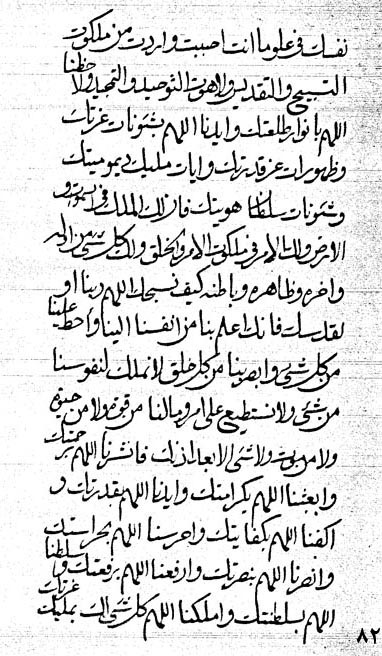 نفسك فی علو ما انت احببت واردت من ملكوت
التسبيح والتقديس ولاهوت التوحيد والتمجيد ولاحظنا
اللهم بانوار طلعتك وايدنا اللهم بشئونات عزتك
وظهورات عز قدرتك وايات مليك ديموميتك
وشئونات سلطان هويتك فان لك الملك فی السموات و
الارض ولك الامر فی ملكوت الامر والخلق ولك كل شیء من اوله
واخره وظاهره وباطنه كيف نسبحك اللهم ربنا او
نقدسك فانك اعلم بنا من انفسنا الينا واحط علينا
من كل شیء وابصر بنا من كل خلق لانملك لنفوسنا
من شیء ولا نستطيع علی امر ومالنا من قوة ولا من حيوة
ولا من موت ولا شیء الا بعد اذنك فانشرنا اللهم برحمتك
وابعثنا اللهم بكرامتك وايدنا اللهم بقدرتك و
اكفنا اللهم بكفايتك واحرسنا اللهم بحراستك
وانصرنا اللهم بنصرتك وارفعنا اللهم برفعتك وسلطنا
اللهم بسلطنتك واملكنا اللهم كل شیء بمليك عزتك
٨٢